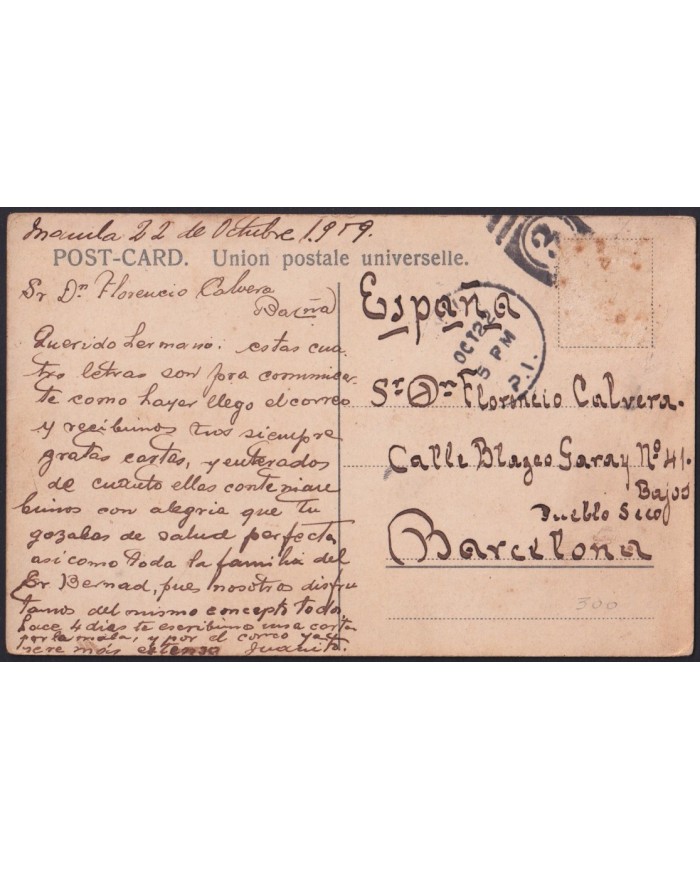 Manila 22 de Octubre 1909.
POST-CARD. Union postale universelle.
Sr Dn Florencio Calvera
Barña
Querido hermano: estas cua-
tro letras son pra comunicar-
te como hayer llego el correo
y recibimos tus siempre
gratas cartas, y enterados
de cuanto ellas contenian
bimos con alegria que tu
gozabas de salud perfecta
asi como toda la familia del
Sr Bernad, pues nosotros disfru-
tamos del mismo concepto todo.
hace 4 dias te escribimo una carta
por la mala, y por el correo ya
sere mais estenso Juanito.
España
OCT 22
5 PM
P.I.
2
Sr. Dn Florincio Calvera.
Calle Blazeo Garay Nº 41.
Bajos
Pueblo Seco
Barcelona
300